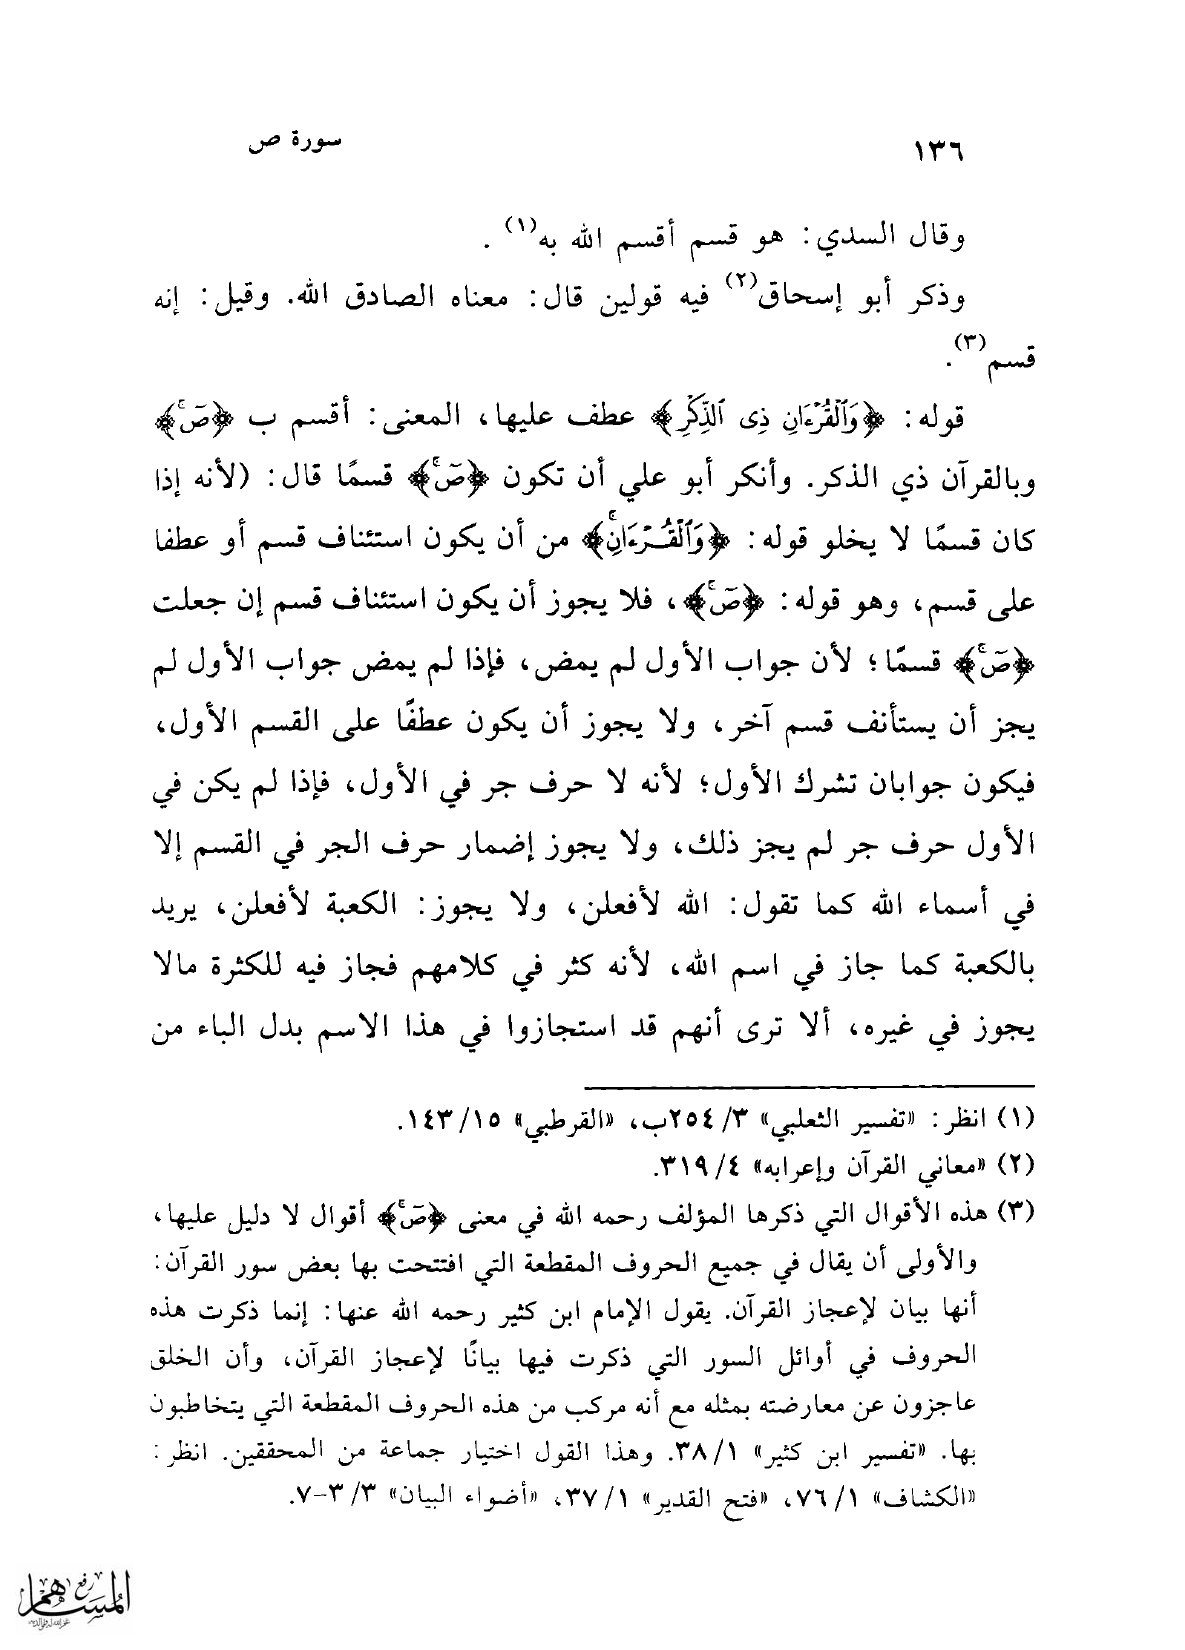 ١٣٦ سورة ص
وقال السدي: هو قسم أقسم الله به(١) .
وذكر أبو إسحاق(٢) فيه قولين قال: معناه الصادق الله. وقيل: إنه
قسم(٣).
قوله: ﴿وَٱلۡقُرۡءَانِ ذِى ٱلذِّكۡرِ﴾ عطف عليها، المعنى: أقسم ب ﴿صٓۚ﴾
وبالقرآن ذي الذكر. وأنكر أبو علي أن تكون ﴿صٓۚ﴾ قسمًا قال: (لأنه إذا
كان قسمًا لا يخلو قوله: ﴿وَٱلۡقُرۡءَانِۚ﴾ من أن يكون استئناف قسم أو عطفا
على قسم، وهو قوله: ﴿صٓۚ﴾، فلا يجوز أن يكون استئناف قسم إن جعلت
﴿صٓۚ﴾ قسمًا؛ لأن جواب الأول لم يمض، فإذا لم يمض جواب الأول لم
يجز أن يستأنف قسم آخر، ولا يجوز أن يكون عطفًا على القسم الأول،
فيكون جوابان تشرك الأول؛ لأنه لا حرف جر في الأول، فإذا لم يكن في
الأول حرف جر لم يجز ذلك، ولا يجوز إضمار حرف الجر في القسم إلا
في أسماء الله كما تقول: الله لأفعلن، ولا يجوز: الكعبة لأفعلن، يريد
بالكعبة كما جاز في اسم الله، لأنه كثر في كلامهم فجاز فيه للكثرة مالا
يجوز في غيره، ألا ترى أنهم قد استجازوا في هذا الاسم بدل الباء من
(١) انظر: «تفسير الثعلبي» ٣/ ٢٥٤ب، «القرطبي» ١٥/ ١٤٣.
(٢) «معاني القرآن وإعرابه» ٤/ ٣١٩.
(٣) هذه الأقوال التي ذكرها المؤلف رحمه الله في معنى ﴿صٓۚ﴾ أقوال لا دليل عليها،
والأولى أن يقال في جميع الحروف المقطعة التي افتتحت بها بعض سور القرآن:
أنها بيان لإعجاز القرآن. يقول الإمام ابن كثير رحمه الله عنها: إنما ذكرت هذه
الحروف في أوائل السور التي ذكرت فيها بيانًا لإعجاز القرآن، وأن الخلق
عاجزون عن معارضته بمثله مع أنه مركب من هذه الحروف المقطعة التي يتخاطبون
بها. «تفسير ابن كثير» ١/ ٣٨. وهذا القول اختيار جماعة من المحققين. انظر:
«الكشاف» ١/ ٧٦، «فتح القدير» ١/ ٣٧، «أضواء البيان» ٣/ ٣-٧.
رفع
المساهم